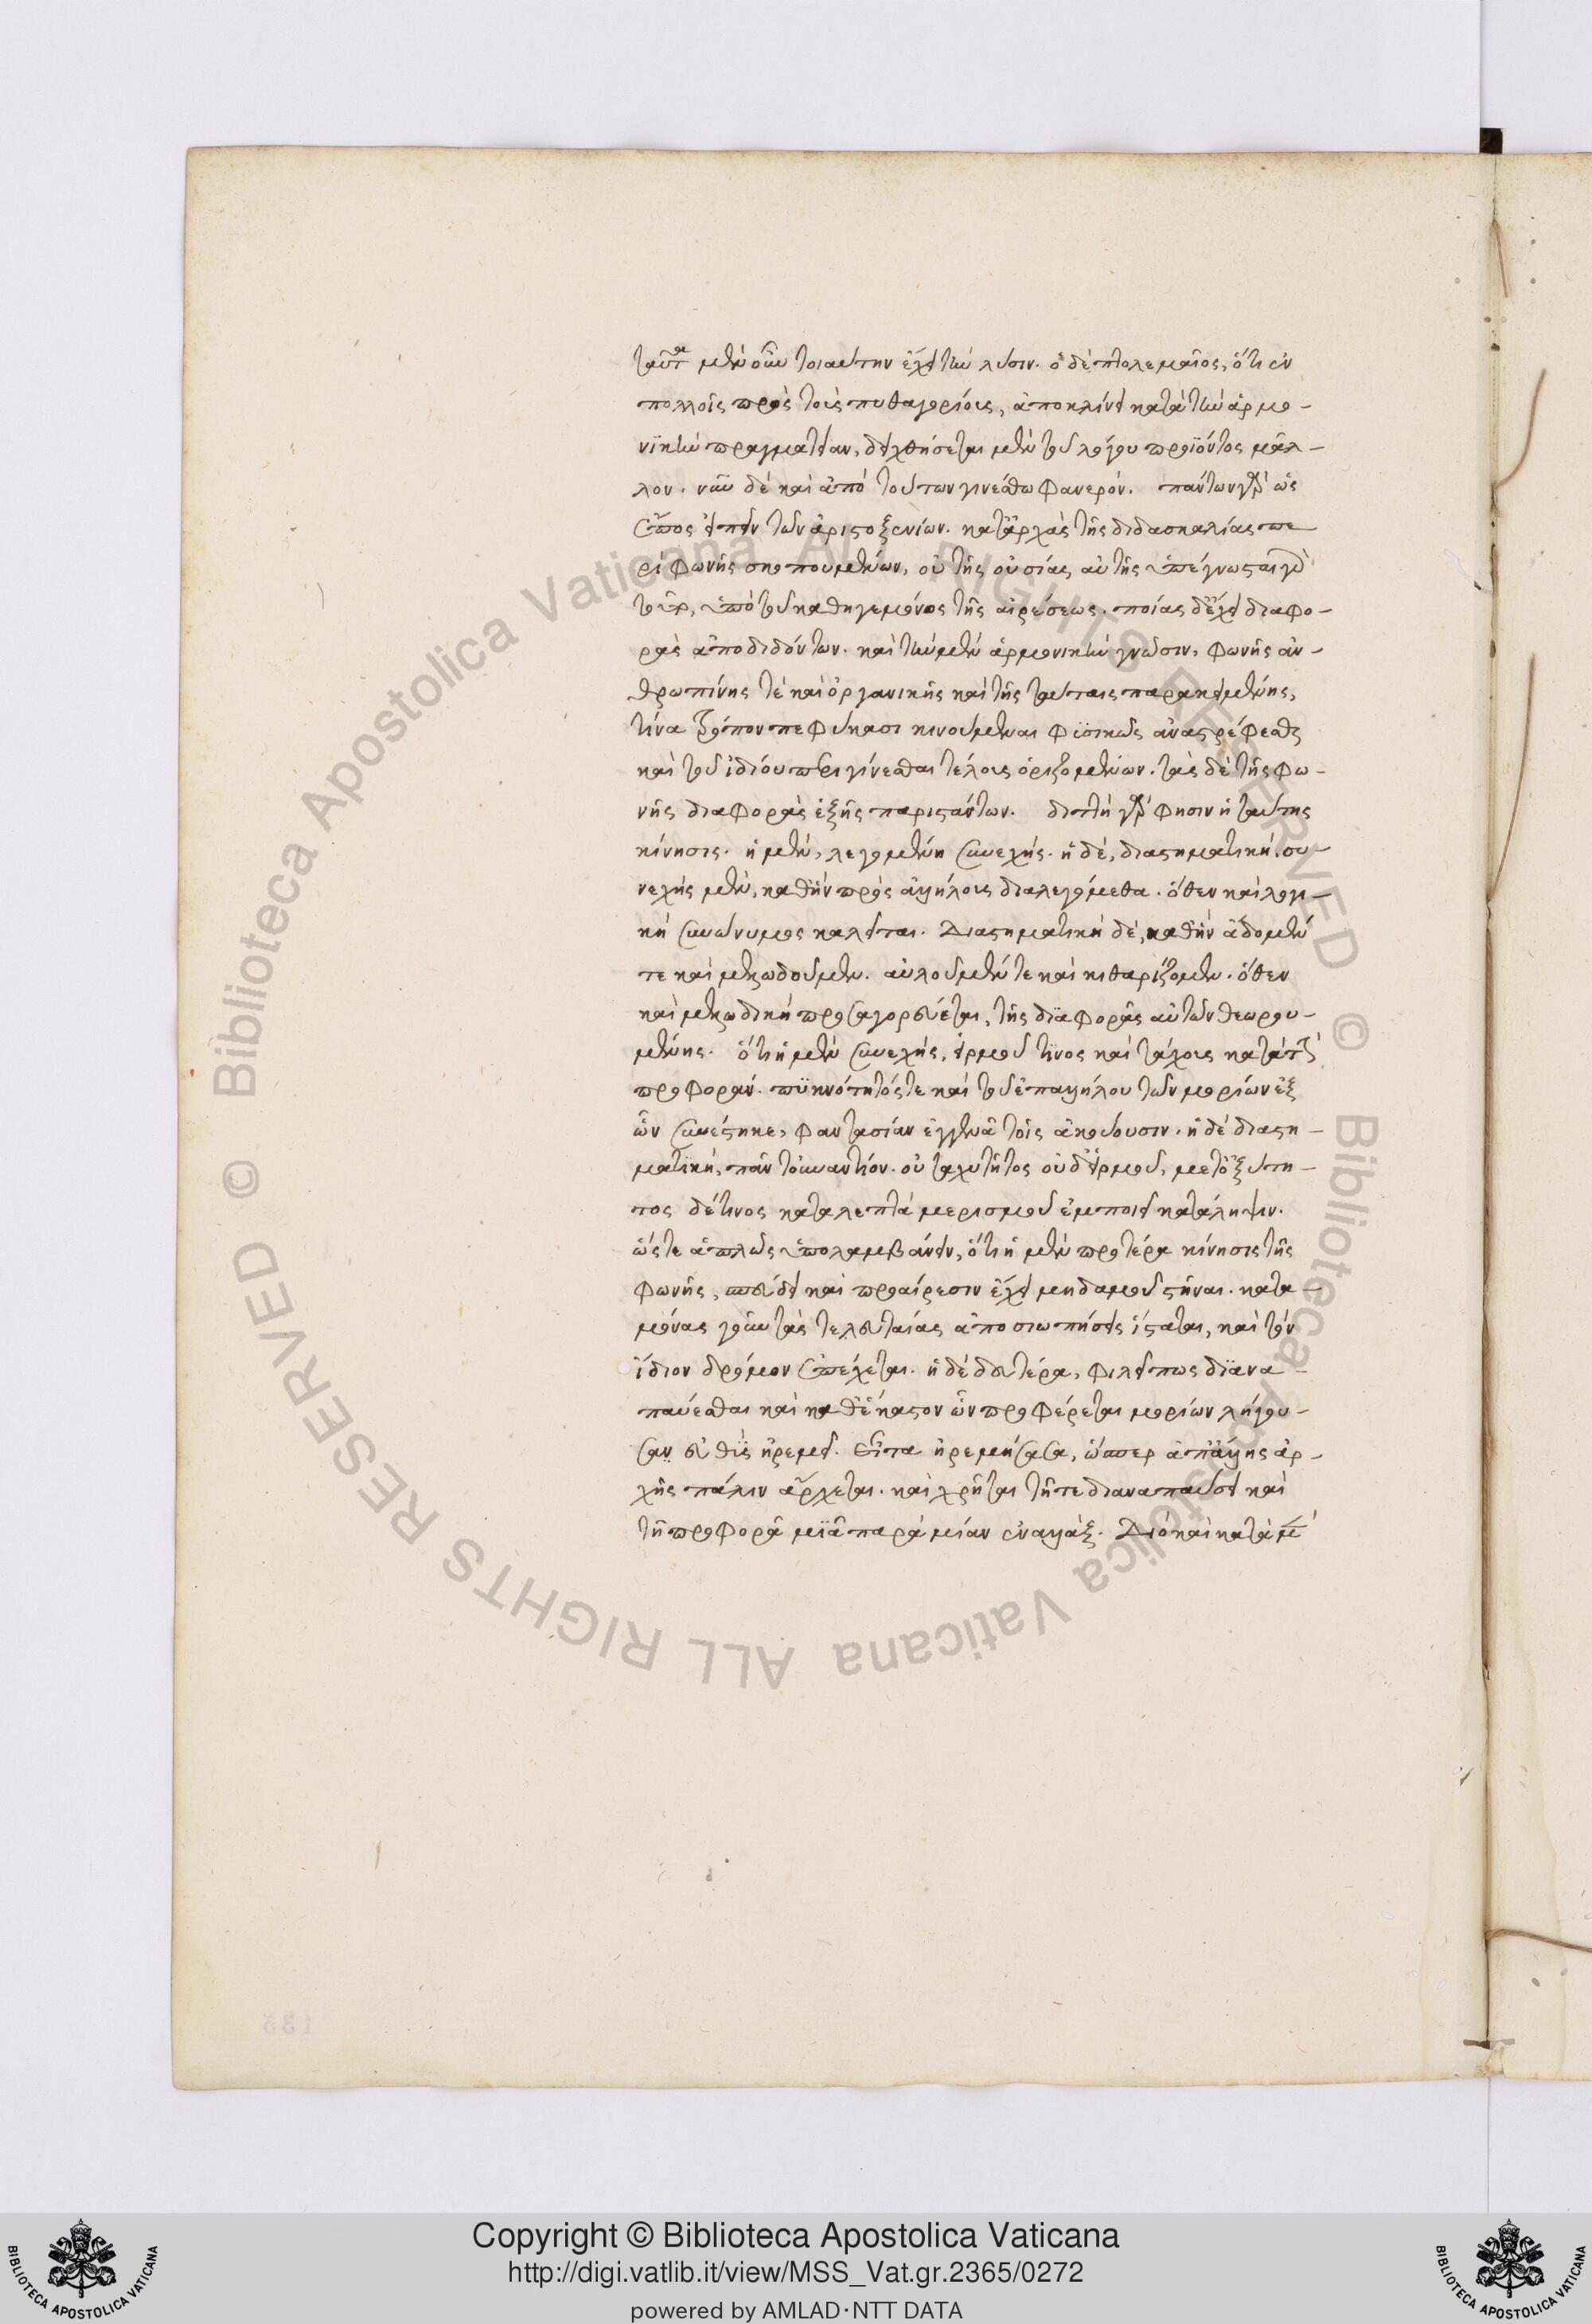 ταῦτα μὲν οὖν τοιαύτην ἔχει τὴν λύσιν. ὁ δὲ πτολεμαῖος, ὅτι ἐν
πολλοῖς πρὸς τοὺς πυθαγορίους, ἀποκλίνει κατὰ τὴν ἁρμο-
νϊκὴν πραγματείαν, δειχθήσεται μὲν τοῦ λόγου προϊόντος μᾶλ-
λον. νῦν δὲ καὶ ἀπὸ τούτων γινέσθω φανερόν. πάντων γὰρ ὡς
ἔπος εἰπεῖν τῶν ἀριστοξενίων. κατἀρχὰς τῆς διδασκαλίας πε
ρὶ φωνῆς σκοπουμένων, οὐ τῆς οὐσίας αὐτῆς
ὑπὸ τοῦ καθηγεμόνος τῆς αἱρέσεως. ποίας δὲ ἔχει διαφο-
ρὰς ἀποδιδόντων. καὶ τὴν μὲν ἁρμονικὴν γνῶσιν, φωνῆς ἀν-
θρωπίνης τὲ καὶ ὀργανικῆς καὶ τῆς ταύταις παρακειμένης,
τίνα τρόπον πεφύκασι κινούμεναι φϋσικῶς ἀναστρέφεσθαι
καὶ τοῦ ἰδίου περιγίνεσθαι τέλους ὁριζομένων. τὰς δὲ τῆς φω-
νῆς διαφορὰς ἑξῆς παριστάντων. διττὴ γὰρ φησιν ἡ ταύτης
κίνησις. ἡ μὲν, λεγομένη συνεχής. ἡ δὲ, διαστηματική. συ-
νεχὴς μὲν, καθἣν πρὸς ἀλλήλους διαλεγόμεθα. ὅθεν καὶ λογι-
κὴ συνωνυμος καλεῖται. Διαστηματικὴ δὲ, καθἣν ᾄδομέν
τε καὶ μελωδοῦμεν. αὐλοῦμέν τε καὶ κιθαρίζομεν. ὅθεν
καὶ μελωδικὴ προσαγορεύεται, τῆς δϊαφορᾶς αὐτῶν θεωρου-
μένης. ὅτι ἡ μὲν συνεχὴς, εἱρμοῦ τινος καὶ τάχους κατὰ τὴν
προφορὰν. πϋκνότητός τε καὶ τοῦ ἐπαλλήλου τῶν μορίων ἐξ
ὧν συνέστηκε, φαντασίαν ἐγγεννᾶ τοῖς ἀκούουσιν. ἡ δὲ διαστη-
ματϊκὴ, πᾶν τοὐναντίον. οὐ ταχυτῆτος οὐδεἱρμοῦ, μετὀξύτη-
τος δέ τινος κατα λεπτὰ μερισμοῦ ἐμποιεῖ κατάληψιν.
ὥςτε ἁπλῶς ὑπολαμβάνειν, ὅτι ἡ μὲν προτέρα κίνησις τῆς
φωνῆς, σπεύδει καὶ προαίρεσιν ἔχει μηδαμοῦ στῆναι. κατα-
μόνας γοῦν τὰς τελευταίας ἀποσιωπήσεις ἵσταται, καὶ τὸν
ἴδιον δρόμον ἐπέχεται. ἡ δὲ δευτέρα, φιλεῖ πως δϊανα-
παύεσθαι καὶ καθἕκαστον ὧν προφέρεται μορίων λήγου-
σαν εὐθϊς ἠρεμεῖ. εἶτα ἠρεμήσασα, ὥσπερ ἀπἄλλης ἀρ-
χῆς πάλιν ἄρχεται. καὶ χρῆται τῆ τε διαναπαύσει καὶ
τῆ προφορᾶ μϊᾶ παρὰ μίαν ἐναλλὰξ. Διὸ καὶ κατὰ μὲν
Copyright © Biblioteca Apostolica Vaticana
http://digi.vatlib.it/view/MSS_Vat.gr.2365/0272
powered by AMLAD·NTT DATA